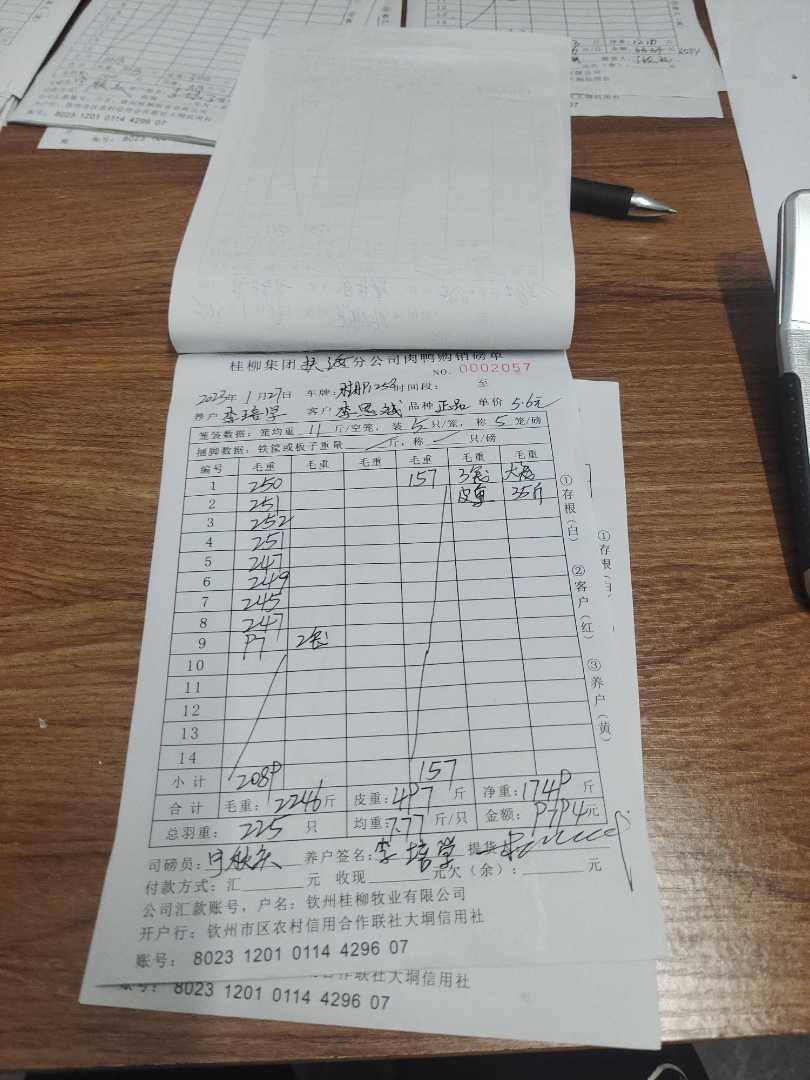 账号: 8023 1201 0114 4296 07
桂柳集团 分公司肉鸭购销磅单
NO. 0002057
2023年 1月27日 车牌: 时间段: 至
养户 李培学 客户 李思 品种 正品 单价 5.6元
笼装数据: 笼均重 11 斤/空笼, 装 5 只/笼, 称 5 笼/磅
捆脚数据: 铁筐或板子重量 斤, 称 只/磅
编号 毛重 毛重 毛重 毛重 毛重 毛重
1 250 157 3 大
2 251 皮重 35斤
3 252
4 251
5 247
6 249
7 245
8 247
9 97 2
10
11
12
13
14
小计 2089 157
合计 毛重: 2246斤 皮重: 497 斤 净重: 1749 斤
总羽重: 225 只 均重: 7.77 斤/只 金额: 9794元
司磅员: 养户签名: 李培学 提货
付款方式: 汇 元 收现 元欠(余): 元
公司汇款账号, 户名: 钦州桂柳牧业有限公司
开户行: 钦州市区农村信用合作联社大垌信用社
账号: 8023 1201 0114 4296 07
①存根(白) ②客户(红) ③养户(黄)
合作联社大垌信用社
8023 1201 0114 4296 07